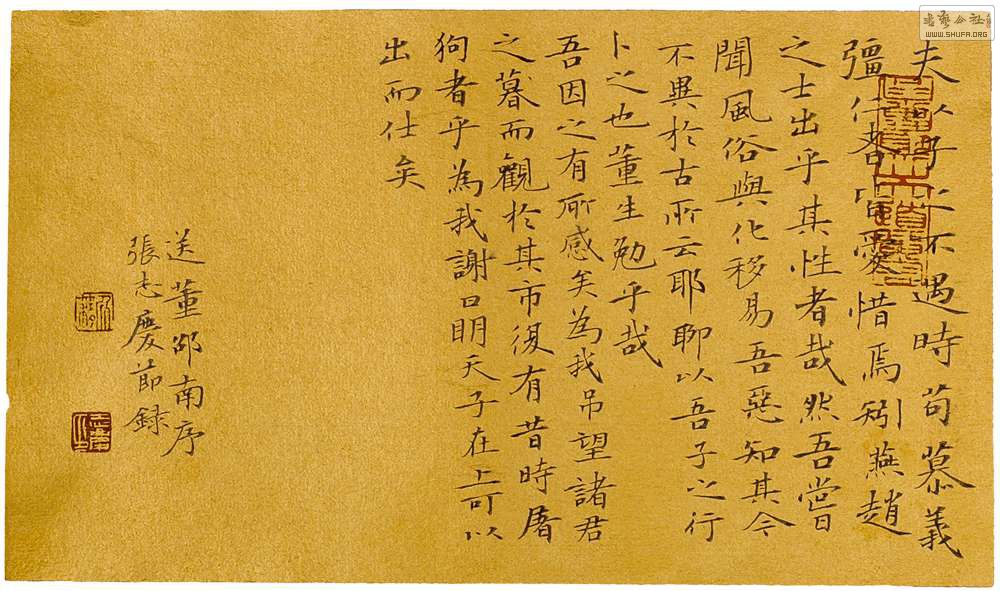 夫以子之不遇時苟慕義
彊仁者皆愛惜焉矧燕趙
之士出乎其性者哉然吾嘗
聞風俗與化移易吾惡知其今
不異於古所云耶聊以吾子之行
卜之也董生勉乎哉
吾因之有所感矣為我吊望諸君
之墓而觀於其市復有昔時屠
狗者乎為我謝曰明天子在上可以
出而仕矣
送董邵南序
張志慶節錄
书艺公社
WWW.SHUFA.ORG